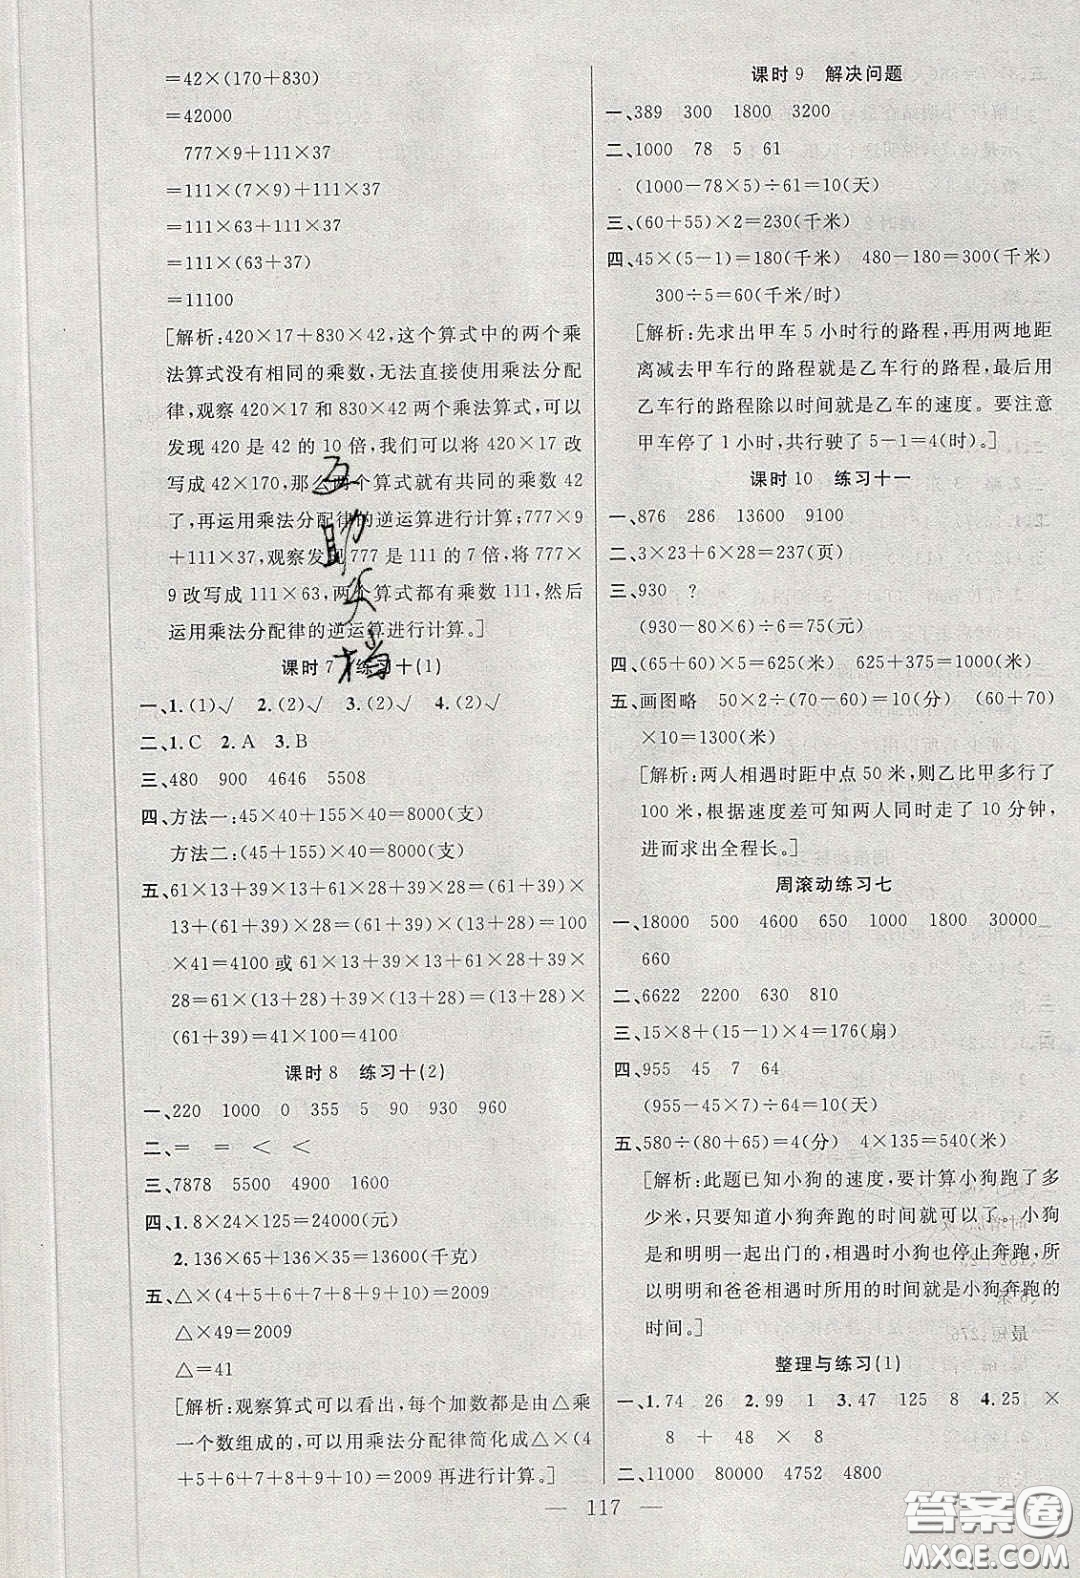 =42×(170+830)
=42000
777×9+111×37
=111×(7×9)+111×37
=111×63+111×37
=111×(63+37)
=11100
[解析:420×17+830×42,这个算式中的两个乘
法算式没有相同的乘数,无法直接使用乘法分配
律,观察 420×17 和 830×42 两个乘法算式,可以
发现 420 是 42 的 10 倍,我们可以将 420×17 改
写成 42×170,那么两个算式就有共同的乘数 42
了,再运用乘法分配律的逆运算进行计算;777×9
+111×37,观察发现 777 是 111 的 7 倍,将 777×
9 改写成 111×63,两个算式都有乘数 111,然后
运用乘法分配律的逆运算进行计算。]
互助文档
课时 7 练习十(1)
一、1.(1)√ 2.(2)√ 3.(2)√ 4.(2)√
二、1.C 2.A 3.B
三、480 900 4646 5508
四、方法一:45×40+155×40=8000(支)
方法二:(45+155)×40=8000(支)
五、61×13+39×13+61×28+39×28=(61+39)×
13+(61+39)×28=(61+39)×(13+28)=100
×41=4100 或 61×13+39×13+61×28+39×
28=61×(13+28)+39×(13+28)=(13+28)×
(61+39)=41×100=4100
课时 8 练习十(2)
一、220 1000 0 355 5 90 930 960
二、= = < <
三、7878 5500 4900 1600
四、1.8×24×125=24000(元)
2.136×65+136×35=13600(千克)
五、△×(4+5+6+7+8+9+10)=2009
△×49=2009
△=41
[解析:观察算式可以看出,每个加数都是由△乘
一个数组成的,可以用乘法分配律简化成△×(4
+5+6+7+8+9+10)=2009 再进行计算。]
课时 9 解决问题
一、389 300 1800 3200
二、1000 78 5 61
(1000-78×5)÷61=10(天)
三、(60+55)×2=230(千米)
四、45×(5-1)=180(千米) 480-180=300(千米)
300÷5=60(千米/时)
[解析:先求出甲车 5 小时行的路程,再用两地距
离减去甲车行的路程就是乙车行的路程,最后用
乙车行的路程除以时间就是乙车的速度。要注意
甲车停了 1 小时,共行驶了 5-1=4(时)。]
课时 10 练习十一
一、876 286 13600 9100
二、3×23+6×28=237(页)
三、930 ?
(930-80×6)÷6=75(元)
四、(65+60)×5=625(米) 625+375=1000(米)
五、画图略 50×2÷(70-60)=10(分) (60+70)
×10=1300(米)
[解析:两人相遇时距中点 50 米,则乙比甲多行了
100 米,根据速度差可知两人同时走了 10 分钟,
进而求出全程长。]
周滚动练习七
一、18000 500 4600 650 1000 1800 30000
660
二、6622 2200 630 810
三、15×8+(15-1)×4=176(扇)
四、955 45 7 64
(955-45×7)÷64=10(天)
五、580÷(80+65)=4(分) 4×135=540(米)
[解析:此题已知小狗的速度,要计算小狗跑了多
少米,只要知道小狗奔跑的时间就可以了。小狗
是和明明一起出门的,相遇时小狗也停止奔跑,所
以明明和爸爸相遇时所用的时间就是小狗奔跑的
时间。]
整理与练习(1)
一、1.74 26 2.99 1 3.47 125 8 4.25 ×
8 + 48 × 8
二、11000 80000 4752 4800
— 117 —
答案圈
MXQE.COM